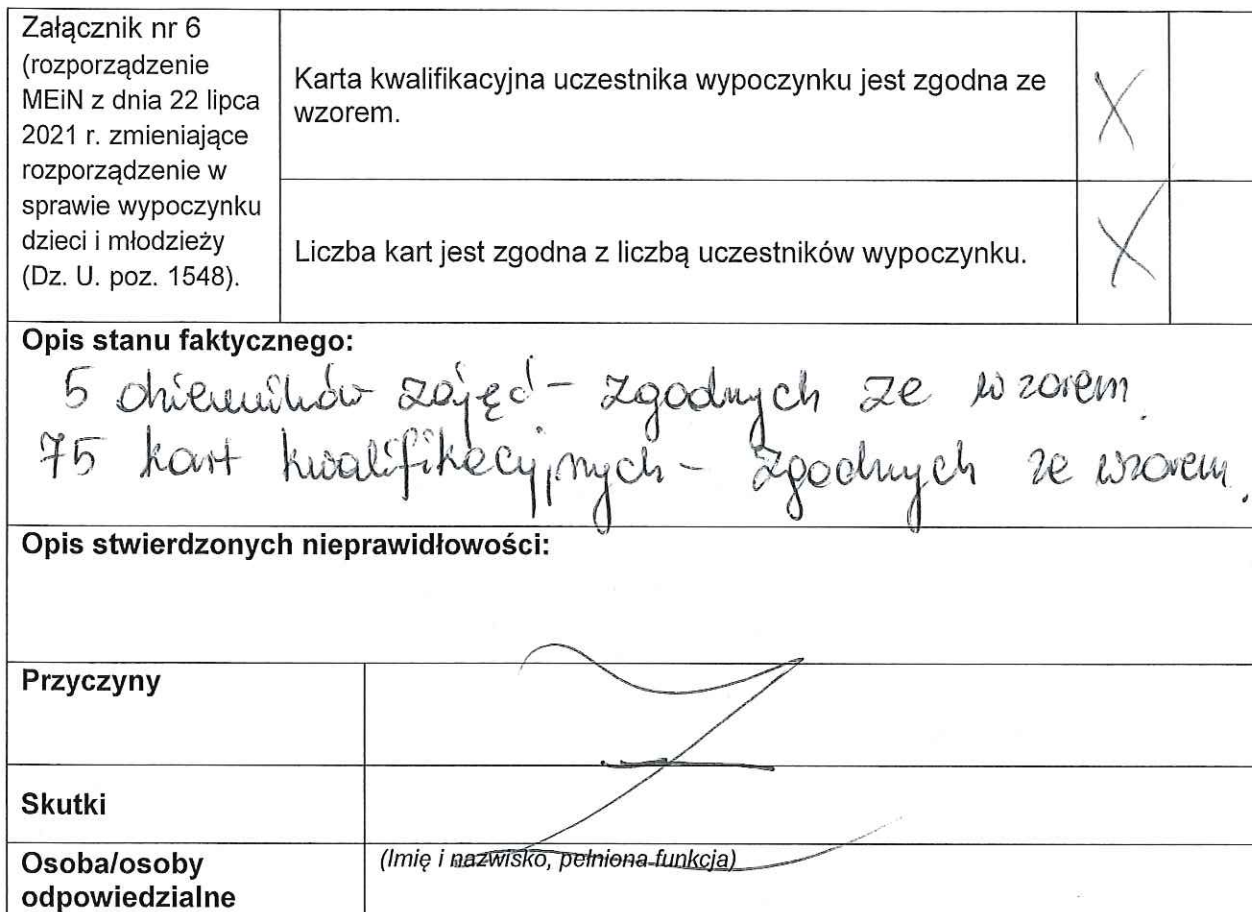 Załącznik nr 6
(rozporządzenie
MEiN z dnia 22 lipca
2021 r. zmieniające
rozporządzenie w
sprawie wypoczynku
dzieci i młodzieży
(Dz. U. poz. 1548).
Karta kwalifikacyjna uczestnika wypoczynku jest zgodna ze
wzorem.
X
Liczba kart jest zgodna z liczbą uczestników wypoczynku.
X
Opis stanu faktycznego:
5 dzienników zajęć - zgodnych ze wzorem.
75 kart kwalifikacyjnych - zgodnych ze wzorem.
Opis stwierdzonych nieprawidłowości:
Przyczyny
Skutki
Osoba/osoby
odpowiedzialne
(Imię i nazwisko, pełniona funkcja)